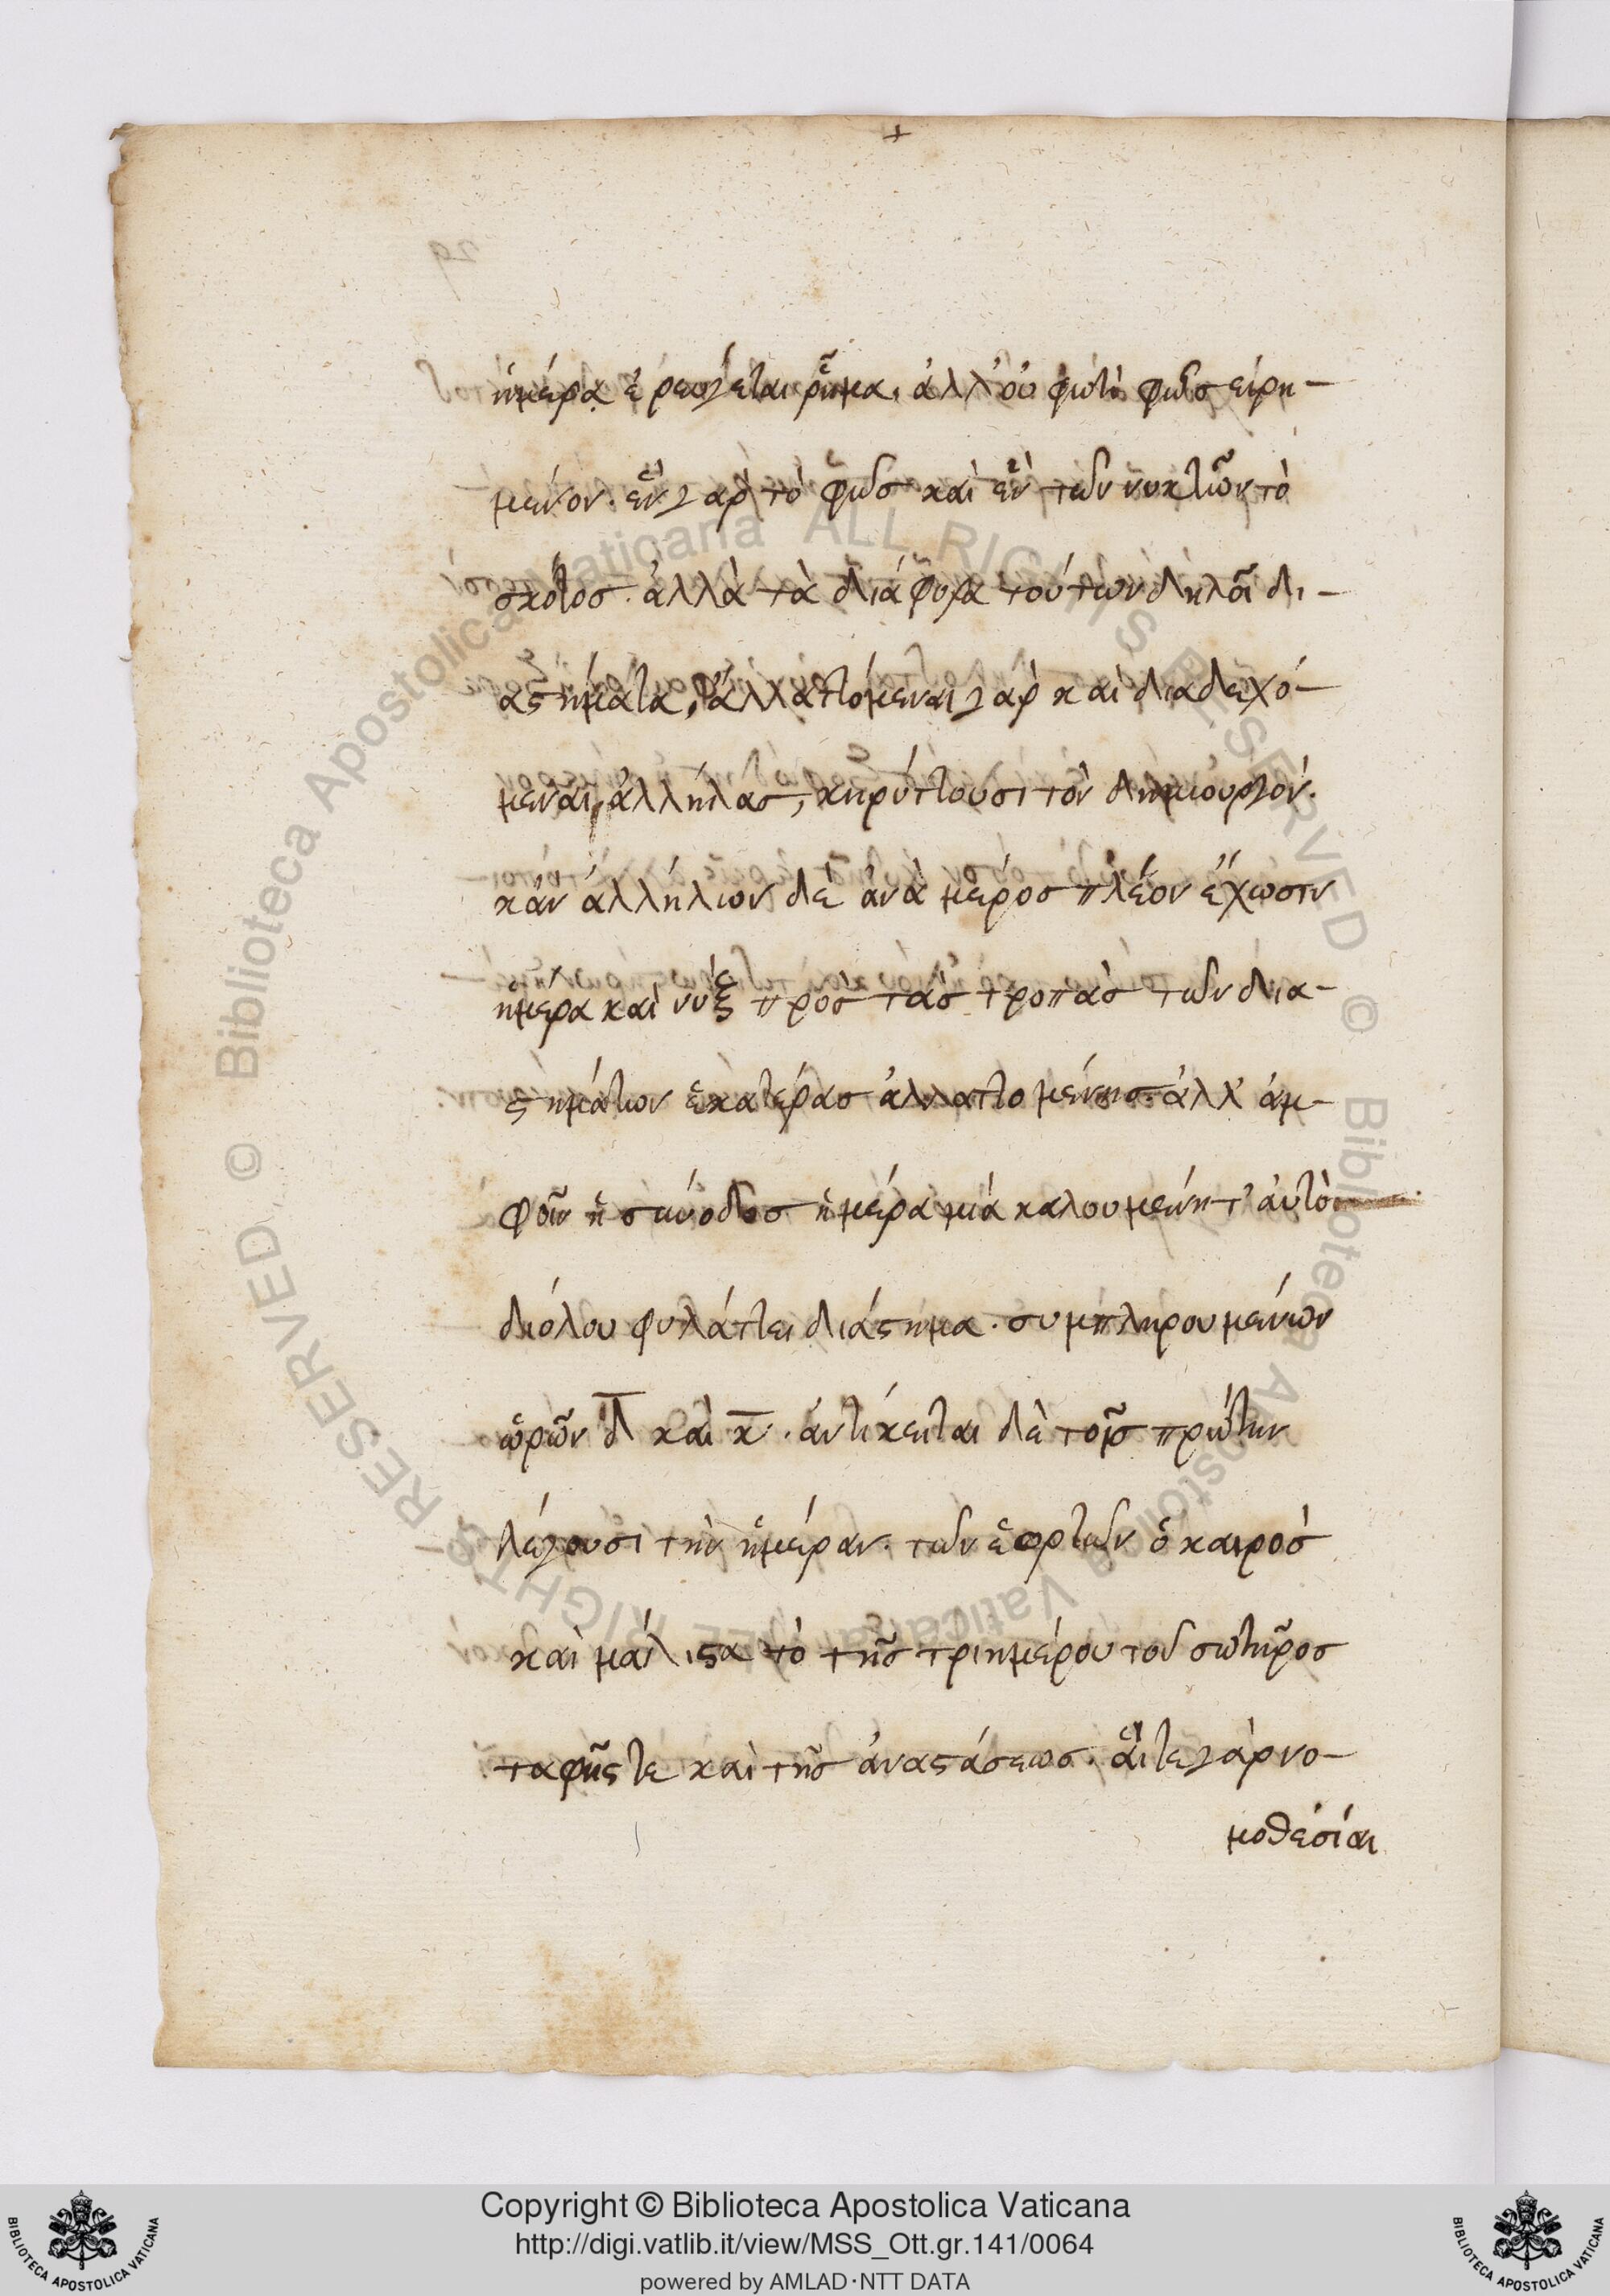 ἡμέρα ἐρεύγεται ῥῆμα. ἀλλ' οὐ φωτὶ φῶς εἰρη-
μένον. ἓν γὰρ τὸ φῶς καὶ ἓν τῶν νυκτῶν τὸ
σκότος. ἀλλὰ τὰ διάφορα τούτων δηλοῖ δι-
αστήματα, ἀλλαττόμεναι γὰρ καὶ διαδεχό-
μεναι ἀλλήλας, κηρύττουσι τὸν δημιουργόν.
κἂν ἀλλήλων δὲ ἀνὰ μέρος πλέον ἔχωσιν
ἡμέρα καὶ νὺξ πρὸς τὰς τροπὰς τῶν δια-
στημάτων ἑκατέρας ἀλλαττομένης. ἀλλ' ἀμ-
φοῖν ἡ σύνοδος ἡμέρα μιὰ καλουμένη τ' αὐτὸ
διόλου φυλάττει διάστημα. συμπληρουμένων
ὡρῶν δ̅ καὶ κ̅. ἀντίκειται δὲ τοῖς πρώτην
λέγουσι τὴν ἡμέραν. τῶν ἑορτῶν ὁ καιρὸς
καὶ μάλιστα τὸ τῆς τριημέρου τοῦ σωτῆρος
ταφῆς τε καὶ τῆς ἀναστάσεως. αἵ τε γὰρ νο-
μοθεσίαι
Copyright © Biblioteca Apostolica Vaticana
http://digi.vatlib.it/view/MSS_Ott.gr.141/0064
powered by AMLAD·NTT DATA
BIBLIOTECA APOSTOLICA VATICANA
BIBLIOTECA APOSTOLICA VATICANA
© Biblioteca Apostolica Vaticana ALL RIGHTS RESERVED © Biblioteca Apostolica Vaticana ALL RIGHTS RESERVED